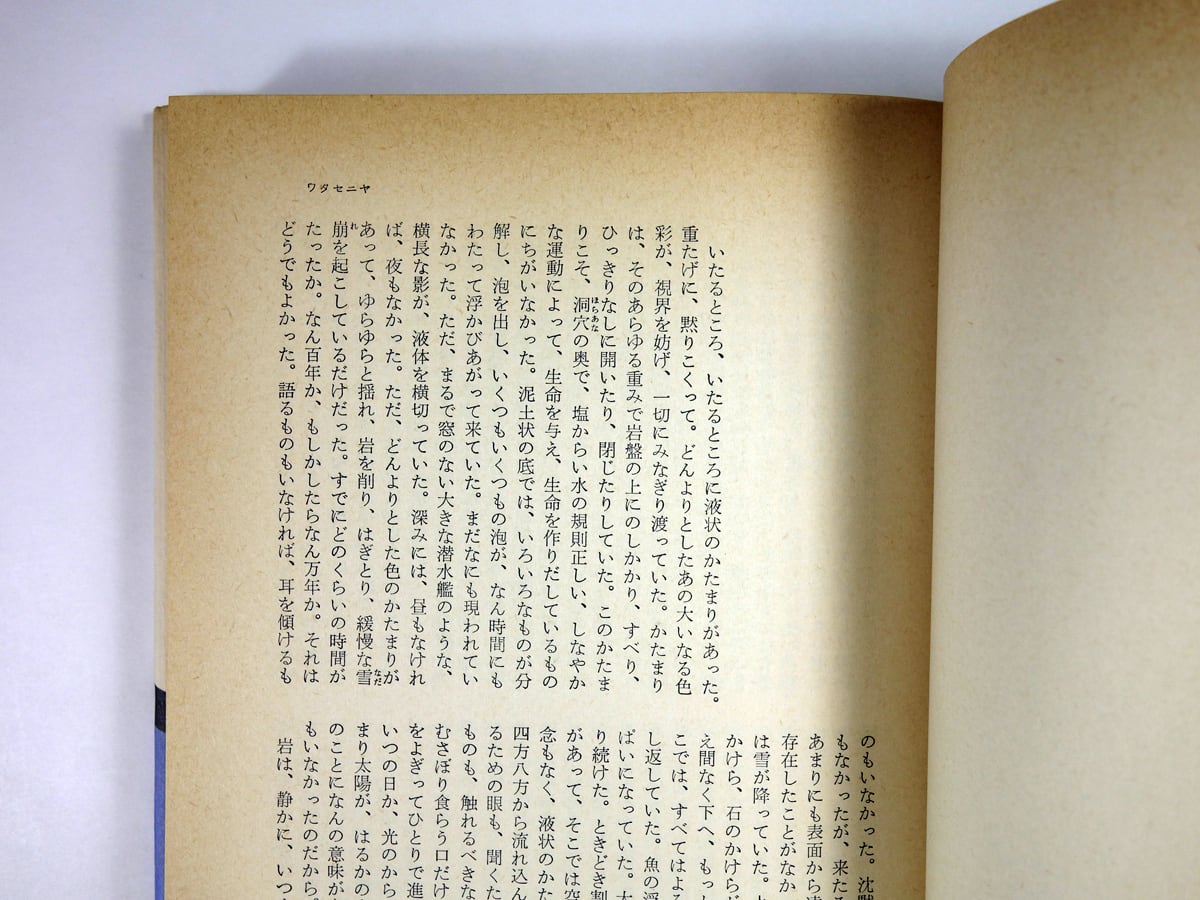 ワタセニヤ
いたるところ、いたるところに液状のかたまりがあった。
重たげに、黙りこくって。どんよりとしたあの大いなる色
彩が、視界を妨げ、一切にみなぎり渡っていた。かたまり
は、そのあらゆる重みで岩盤の上にのしかかり、すべり、
ひっきりなしに開いたり、閉じたりしていた。このかたま
りこそ、洞穴の奥で、塩からい水の規則正しい、しなやか
ほらあな
な運動によって、生命を与え、生命を作りだしているもの
にちがいなかった。泥土状の底では、いろいろなものが分
解し、泡を出し、いくつもいくつもの泡が、なん時間にも
わたって浮かびあがって来ていた。まだなにも現われてい
なかった。ただ、まるで窓のない大きな潜水艦のような、
横長な影が、液体を横切っていた。深みには、昼もなけれ
ば、夜もなかった。ただ、どんよりとした色のかたまりが
あって、ゆらゆらと揺れ、岩を削り、はぎとり、緩慢な雪
なだ
崩を起こしているだけだった。すでにどのくらいの時間が
れ
たったか。なん百年か、もしかしたらなん万年か。それは
どうでもよかった。語るものもいなければ、耳を傾けるも
のもいなかった。沈黙
もなかったが、来たる
あまりにも表面から遠
存在したことがなか
は雪が降っていた。
かけら、石のかけら
え間なく下へ、もっ
こでは、すべてはよ
し返していた。魚の浮
ぱいになっていた。
り続けた。ときどき割
があって、そこでは空
念もなく、液状のかた
四方八方から流れ込ん
るための眼も、聞くた
ものも、触れるべきな
むさぼり食らう口だけ
をよぎってひとりで進
いつの日か、光のから
まり太陽が、はるかの
のことになんの意味が
もいなかったのだから。
岩は、静かに、いつ